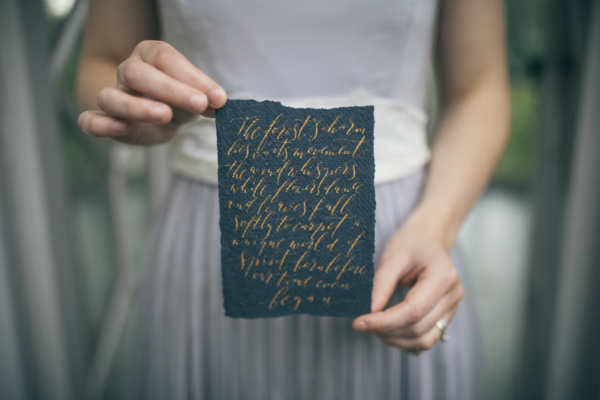 The forest's charm
lies in its movement
the wind whispers
while flowers dance
and leaves fall
softly to carpet a
unique world of
spirit born before
our time even
began